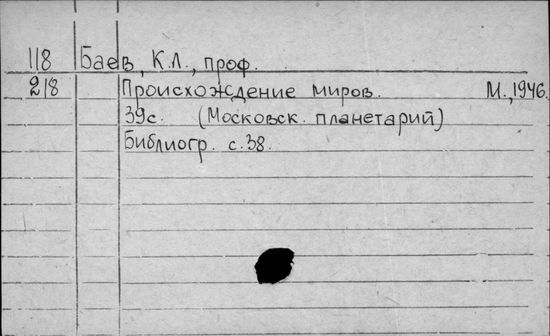 118 Баев, К.Л., проф.
218 Происхождение миров. М., 1946.
39с. (Московск. планетарий)
Библиогр. с.38.